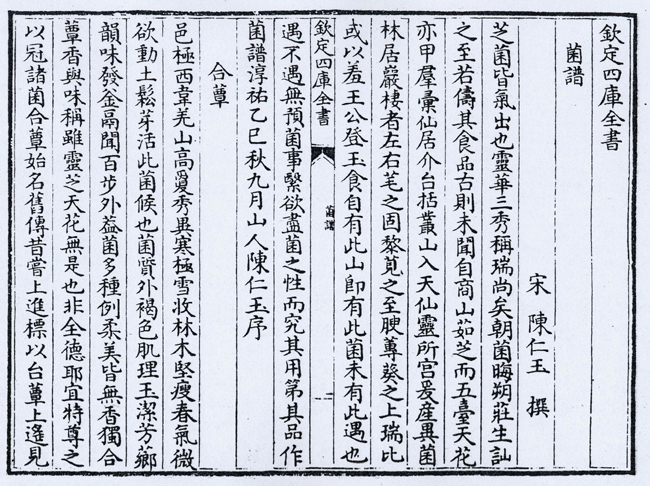 欽定四庫全書
菌譜
宋 陳仁玉 撰
芝菌皆氣出也靈華三秀稱瑞尚矣朝菌晦朔莊生訕
之至若儔其食品古則未聞自商山茹芝而五臺天花
亦甲羣彚仙居介台括叢山入天仙靈所宫爰産異菌
林居巖棲者左右芼之固藜莧之至腴蓴葵之上瑞比
或以羞王公登玉食自有此山即有此菌未有此遇也
欽定四庫全書 菌譜 二
遇不遇無預菌事繫欲盡菌之性而究其用第其品作
菌譜淳祐乙巳秋九月山人陳仁玉序
合蕈
邑極西韋羌山高敻秀異寒極雪收林木堅瘦春氣微
欲動土鬆芽活此菌候也菌質外褐色肌理玉潔芳薌
韻味發釜鬲聞百步外葢菌多種例柔美皆無香獨合
蕈香與味稱雖靈芝天花無是也非全德耶宜特尊之
以冠諸菌合蕈始名舊傳昔嘗上進標以台蕈上遙見